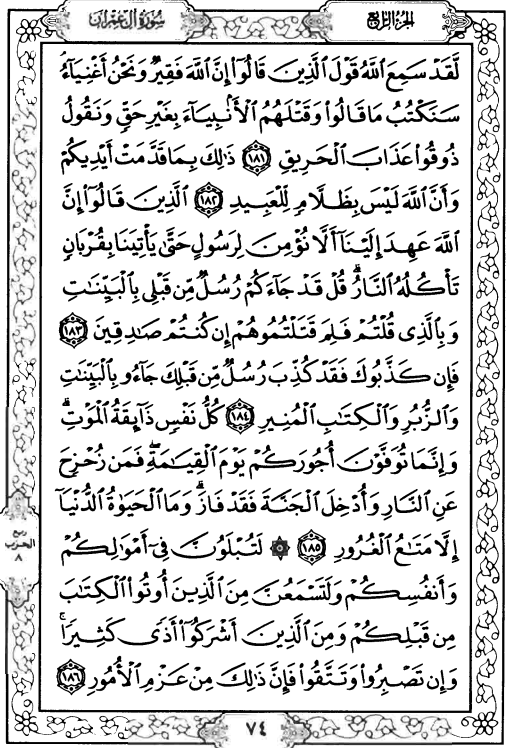 الجزء الرابع
سورة آل عمران
لَّقَدْ سَمِعَ اللَّهُ قَوْلَ الَّذِينَ قَالُوا إِنَّ اللَّهَ فَقِيرٌ وَنَحْنُ أَغْنِيَاءُ
سَنَكْتُبُ مَا قَالُوا وَقَتْلَهُمُ الْأَنبِيَاءَ بِغَيْرِ حَقٍّ وَنَقُولُ
ذُوقُوا عَذَابَ الْحَرِيقِ ١٨١ ذَٰلِكَ بِمَا قَدَّمَتْ أَيْدِيكُمْ
وَأَنَّ اللَّهَ لَيْسَ بِظَلَّامٍ لِّلْعَبِيدِ ١٨٢ الَّذِينَ قَالُوا إِنَّ
اللَّهَ عَهِدَ إِلَيْنَا أَلَّا نُؤْمِنَ لِرَسُولٍ حَتَّىٰ يَأْتِيَنَا بِقُرْبَانٍ
تَأْكُلُهُ النَّارُ ۗ قُلْ قَدْ جَاءَكُمْ رُسُلٌ مِّن قَبْلِي بِالْبَيِّنَاتِ
وَبِالَّذِي قُلْتُمْ فَلِمَ قَتَلْتُمُوهُمْ إِن كُنتُمْ صَادِقِينَ ١٨٣
فَإِن كَذَّبُوكَ فَقَدْ كُذِّبَ رُسُلٌ مِّن قَبْلِكَ جَاءُو بِالْبَيِّنَاتِ
وَالزُّبُرِ وَالْكِتَابِ الْمُنِيرِ ١٨٤ كُلُّ نَفْسٍ ذَائِقَةُ الْمَوْتِ ۗ
وَإِنَّمَا تُوَفَّوْنَ أُجُورَكُمْ يَوْمَ الْقِيَامَةِ ۖ فَمَن زُحْزِحَ
عَنِ النَّارِ وَأُدْخِلَ الْجَنَّةَ فَقَدْ فَازَ ۗ وَمَا الْحَيَوٰةُ الدُّنْيَا
إِلَّا مَتَاعُ الْغُرُورِ ١٨٥ ۞ لَتُبْلَوُنَّ فِي أَمْوَالِكُمْ
وَأَنفُسِكُمْ وَلَتَسْمَعُنَّ مِنَ الَّذِينَ أُوتُوا الْكِتَابَ
مِن قَبْلِكُمْ وَمِنَ الَّذِينَ أَشْرَكُوا أَذًى كَثِيرًا ۚ
وَإِن تَصْبِرُوا وَتَتَّقُوا فَإِنَّ ذَٰلِكَ مِنْ عَزْمِ الْأُمُورِ ١٨٦
ربع
الحزب
٨
٧٤